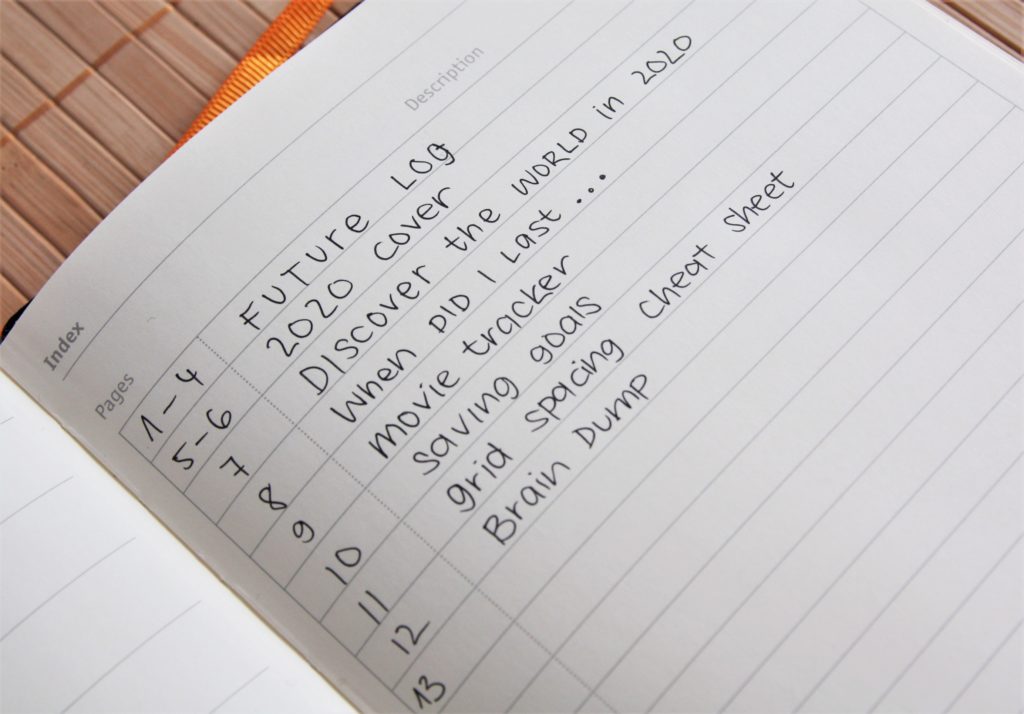 Index
Pages Description
1-4 FUTURE LOG
5-6 2020 cover
7 DIScover the WORLD in 2020
8 When DID I Last ...
9 movie tracker
10 Saving goals
11 grid spacing cheat sheet
12 Brain Dump
13